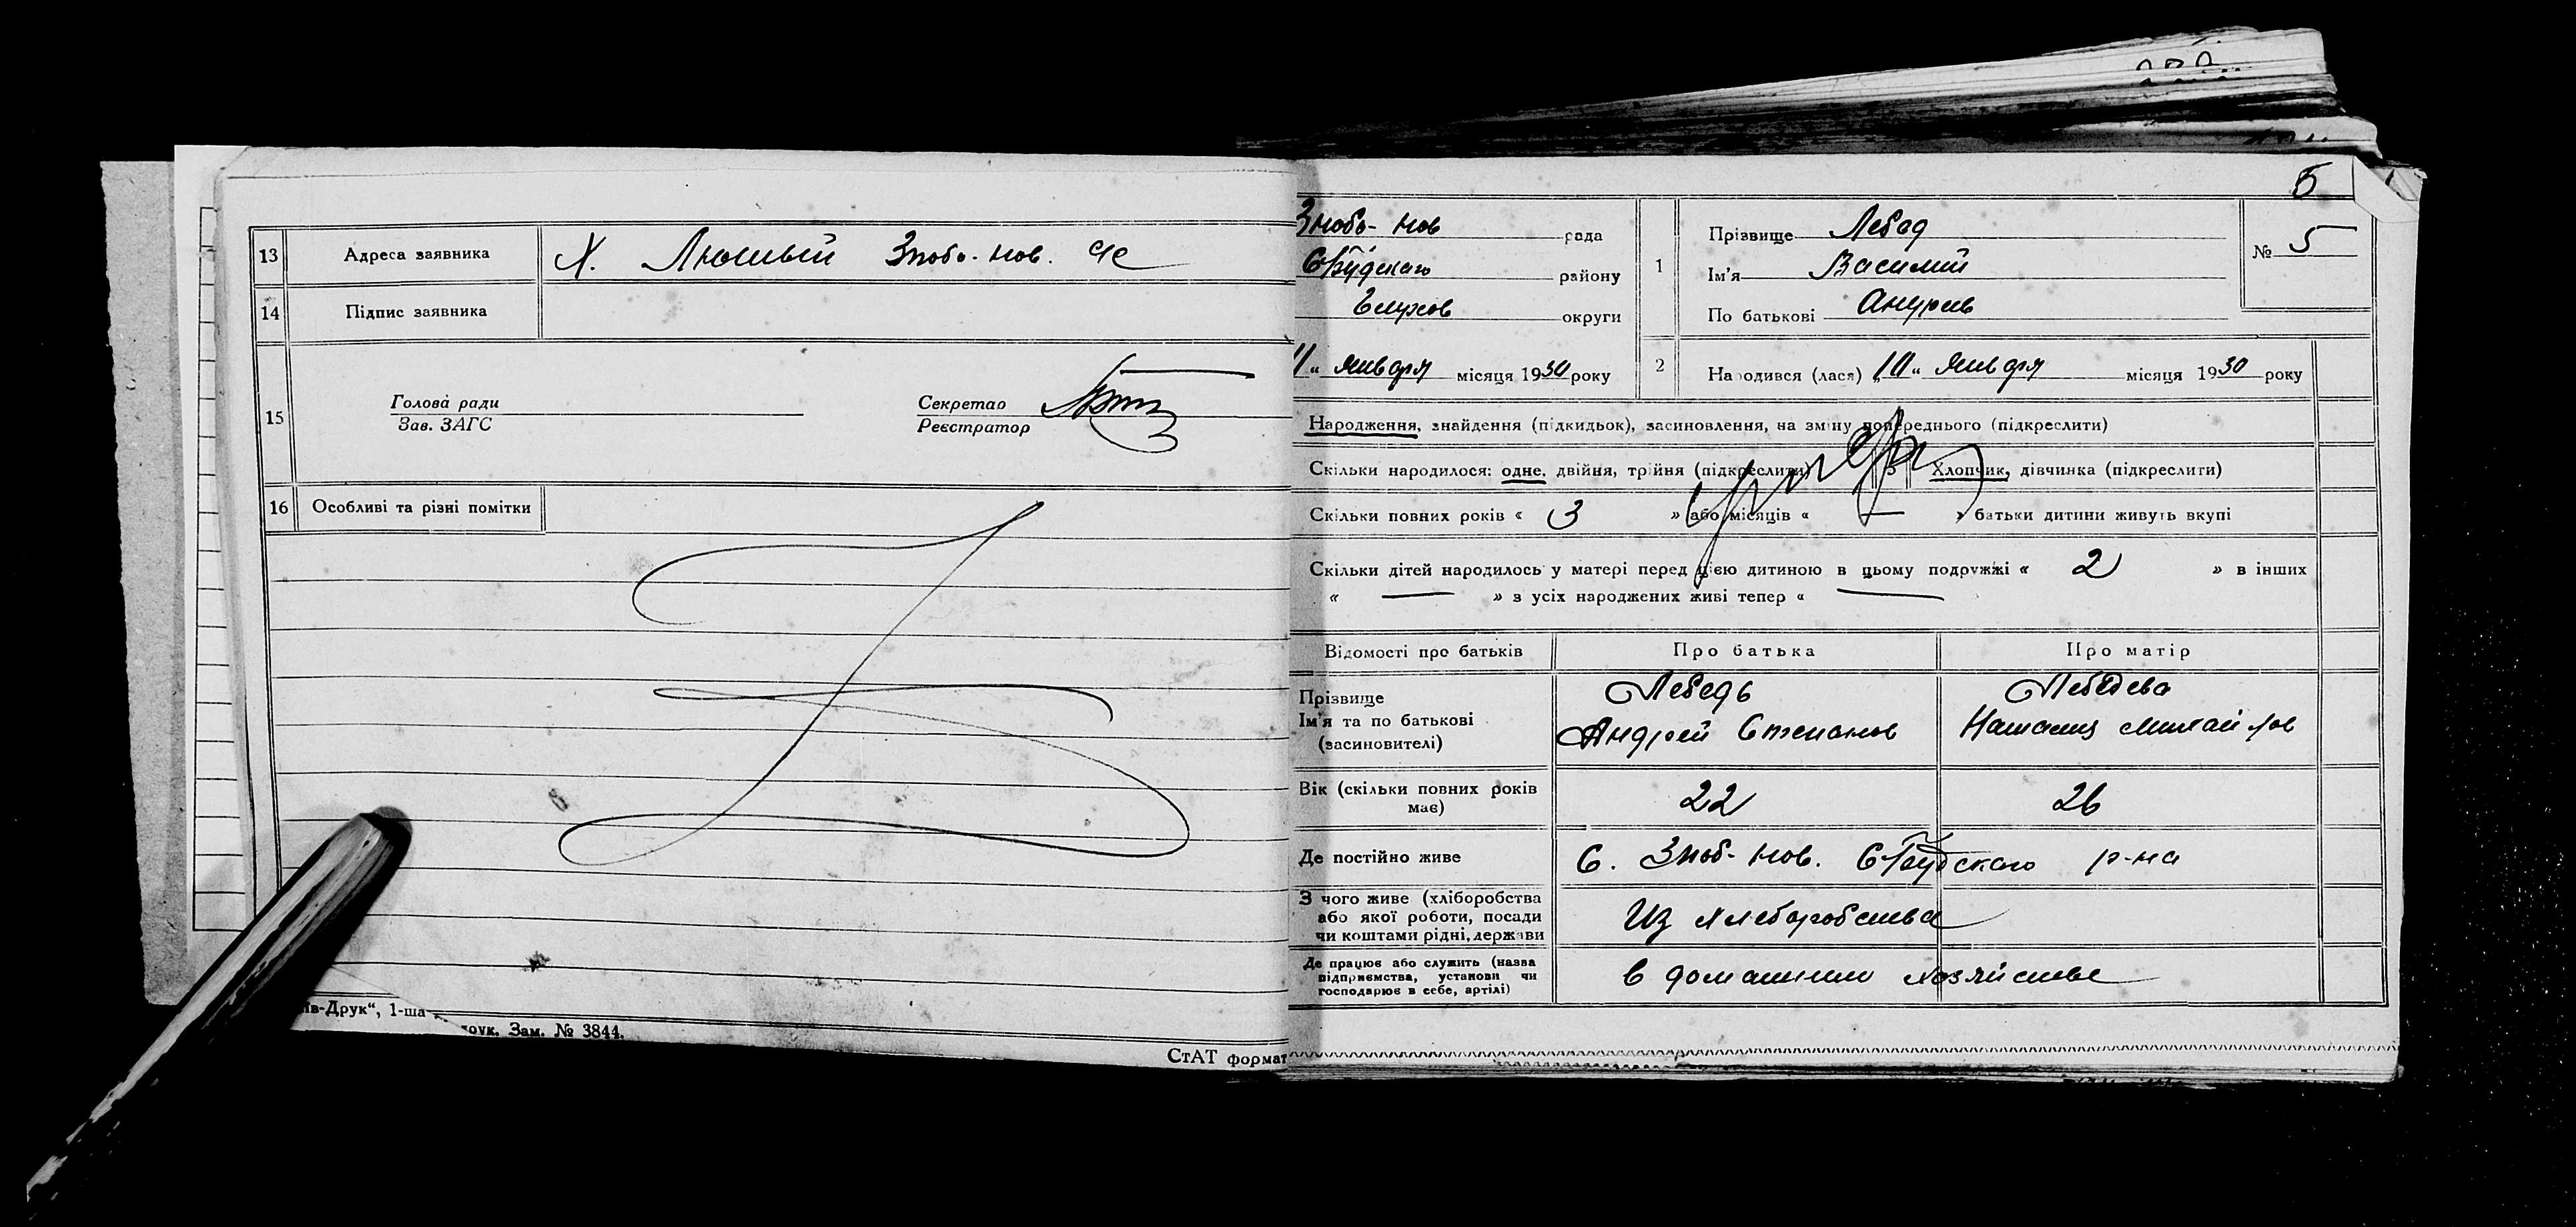 13 Адреса заявника Х. Лютый Знобо-Нов. с/с
14 Підпис заявника
15 Голова ради Секретар
Зав. ЗАГС Реєстратор
16 Особливі та різні помітки
ів-Друк“, 1-ша
друк. Зам. № 3844.
СтАТ формат
5
Знобо-Нов рада
СБудскаго району
Глухов округи
11 „ января місяця 1930 року
1 Прізвище Лебед
Ім'я Василий
По батькові Андреев
№ 5
2 Народився (лася) „10“ января місяця 1930 року
Народження, знайдення (підкидьок), засиновлення, на зміну попереднього (підкреслити)
Скільки народилося: одне, двійня, трійня (підкреслити) 5 Хлопчик, дівчинка (підкреслити)
Скільки повних років « 3 » або місяців « — » батьки дитини живуть вкупі
Скільки дітей народилось у матері перед цією дитиною в цьому подружжі « 2 » в інших
« — » з усіх народжених живі тепер « —
Відомості про батьків Про батька Про матір
Прізвище Лебедь Лебедева
Ім'я та по батькові Андрей Степанов Наталия Михайлов
(засиновителі)
Вік (скільки повних років має) 22 26
Де постійно живе С. Зноб-Нов. СБудскаго р-на
З чого живе (хліборобства
або якої роботи, посади Из хлеборобства
чи коштами рідні, держави
Де працює або служить (назва
підприємства, установи чи В домашнем хозяйстве
господарює в себе, артілі)